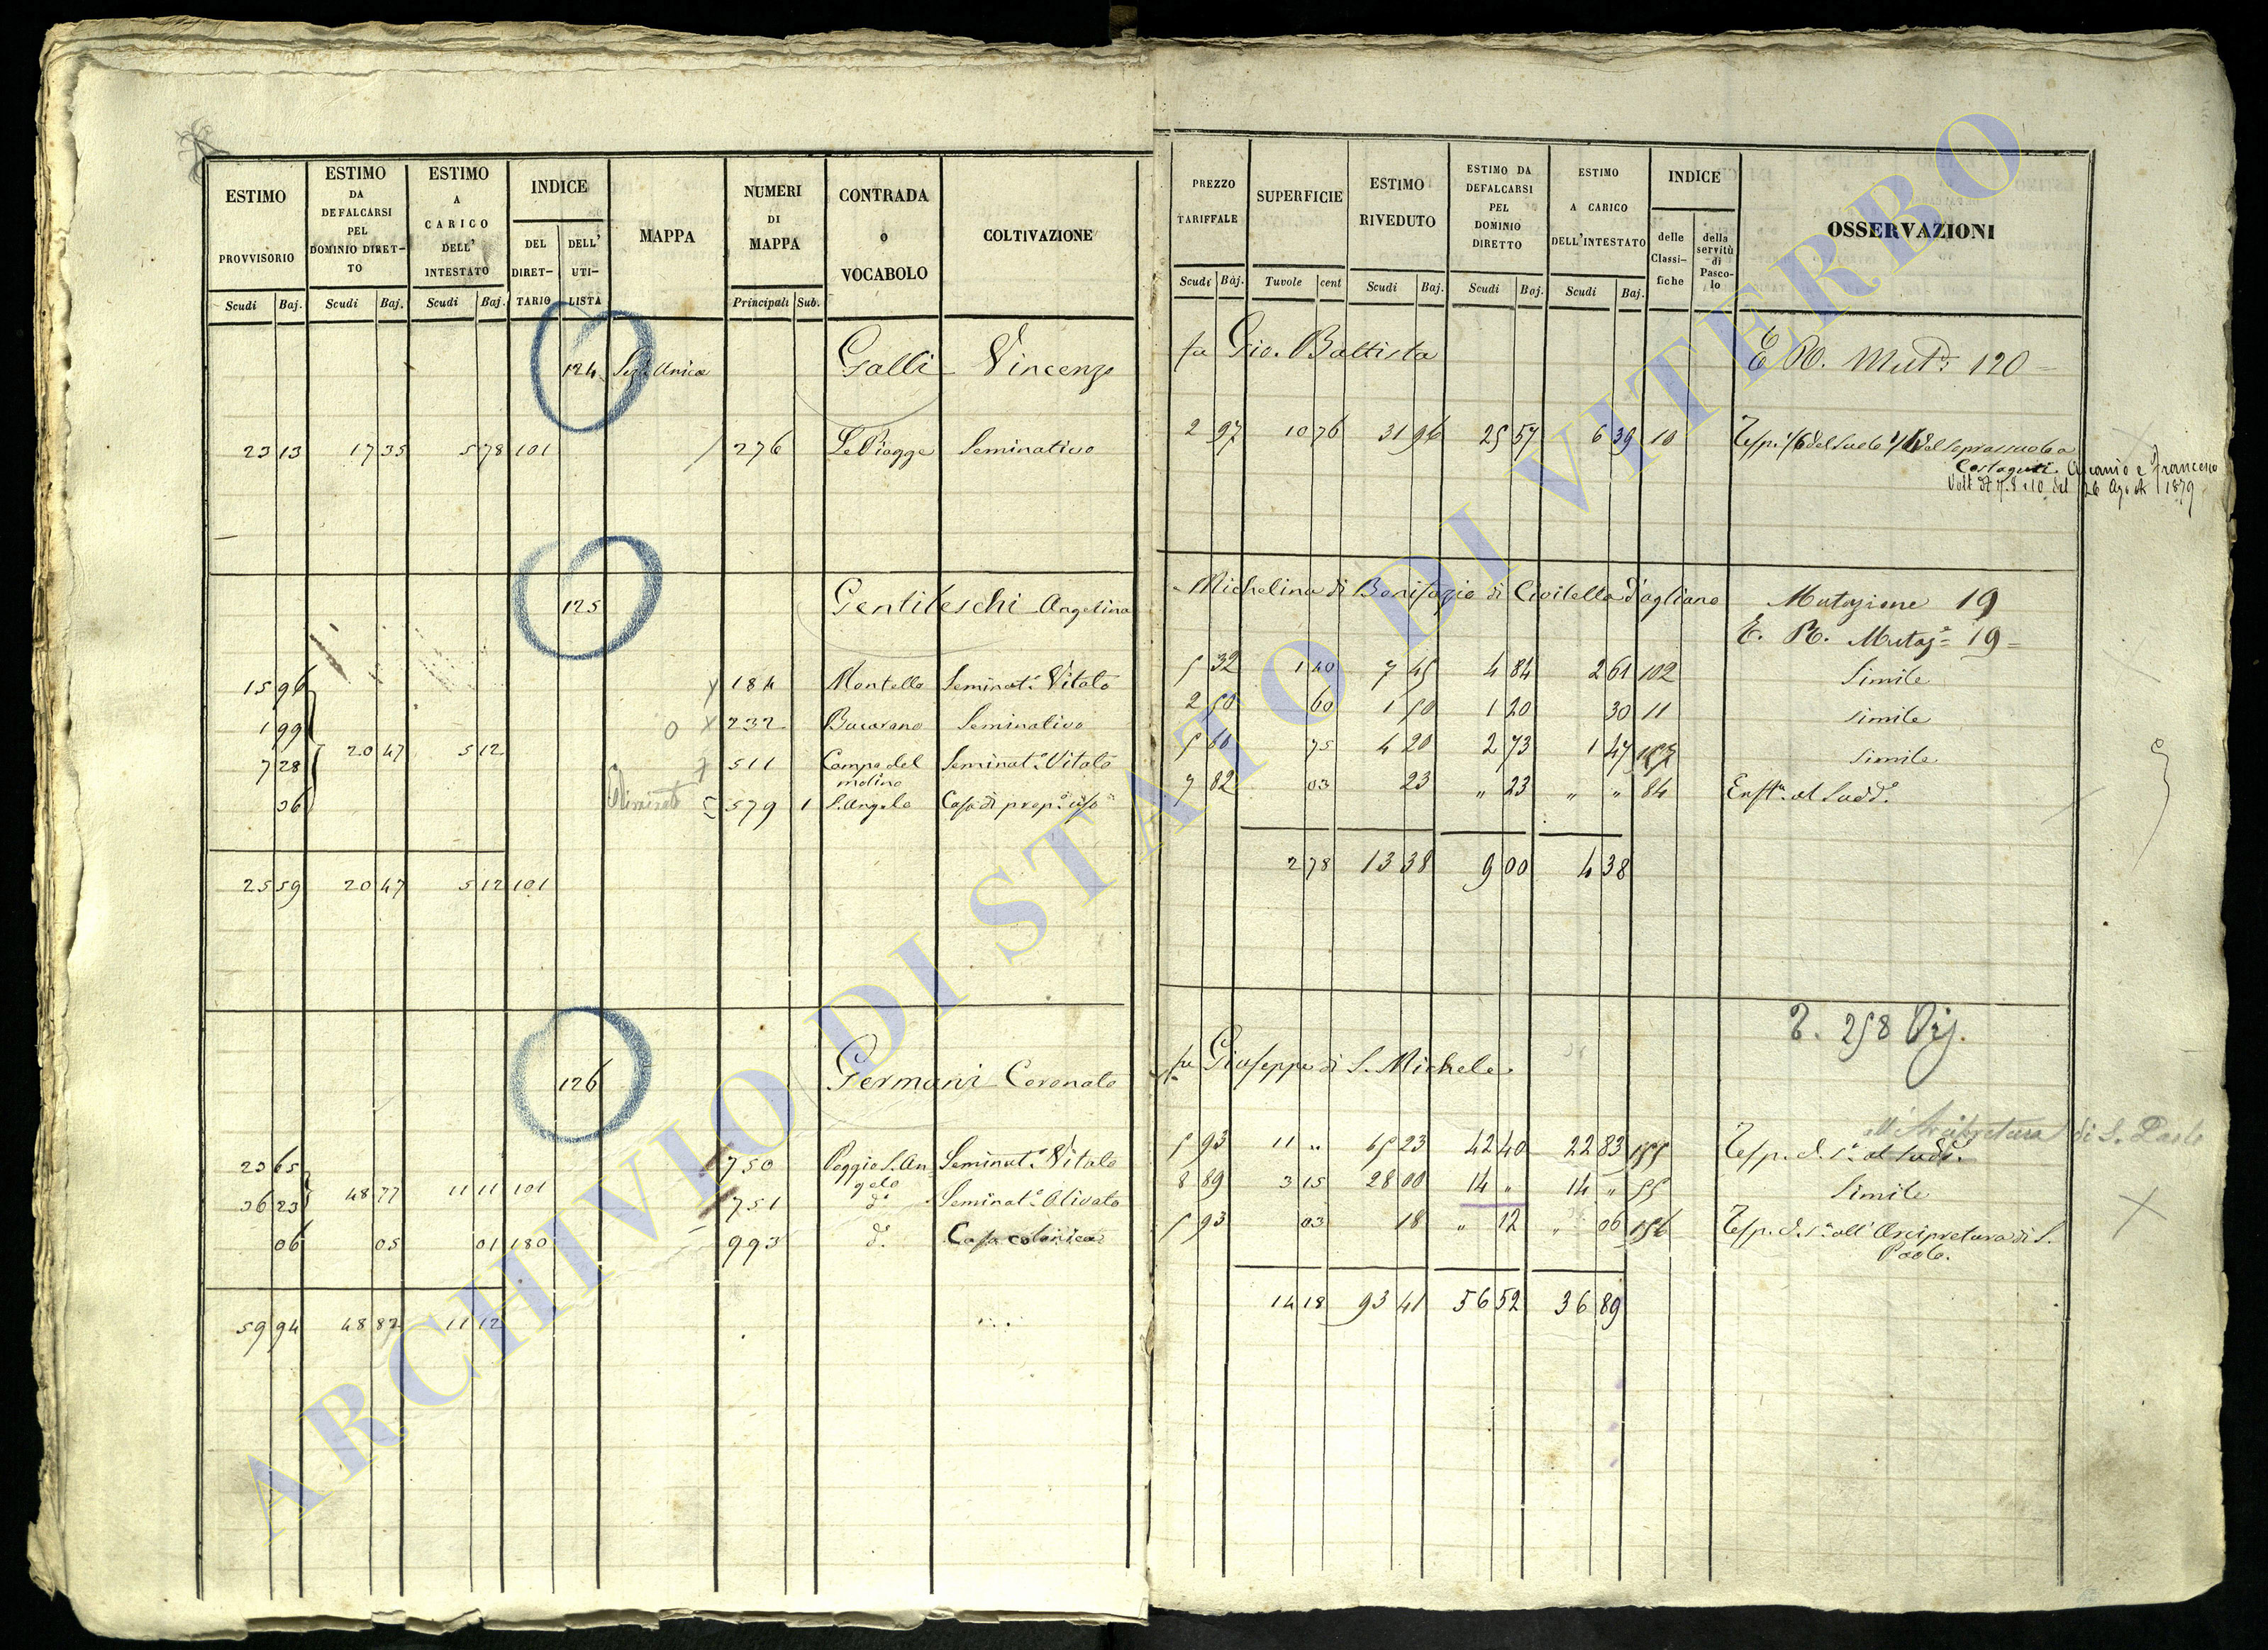 ESTIMO PROVVISORIO Scudi Baj.
ESTIMO DA DEFALCARSI PEL DOMINIO DIRET-TO Scudi Baj.
ESTIMO A CARICO DELL' INTESTATO Scudi Baj.
INDICE DEL DIRET-TARIO DELL' UTI-LISTA
MAPPA
NUMERI DI MAPPA Principali Sub.
CONTRADA o VOCABOLO
COLTIVAZIONE
PREZZO TARIFFALE Scudi Baj.
SUPERFICIE Tavole cent
ESTIMO RIVEDUTO Scudi Baj.
ESTIMO DA DEFALCARSI PEL DOMINIO DIRETTO Scudi Baj.
ESTIMO A CARICO DELL'INTESTATO Scudi Baj.
INDICE delle Classi-fiche della servitù di Pasco-lo
OSSERVAZIONI
124 Sez. Unica Galli Vincenzo fu Gio. Battista E R. Mut. 120
23 13 17 35 5 78 101 276 Le Piagge Seminativo 2 97 10 76 31 96 25 57 6 39 10
Costaguti Ascanio e Francesco
26 Agosto 1879
125 Gentileschi Angelina Michelina di Bonifazio di Civitella d'agliano Mutazione 19
E. R. Mutaz. 19
15 96 184 Montello Seminat. Vitato 5 32 1 40 7 45 4 84 2 61 102 Simile
1 99 232 Seminativo 2 50 60 1 50 1 20 30 11 Simile
20 47 5 12
7 28 511 Campo del molino Seminat. Vitato 5 60 75 4 20 2 73 1 47 Simile
36 579 1 S. Angelo Casa di prop. uso 7 82 03 23 " 23 " " 84
25 59 20 47 5 12 101 2 78 13 38 9 00 4 38
126 Germani Coronato fu Giuseppe di S. Michele.
258
all'Arcipretura di S. Paolo
23 65 750 Poggio S. Angelo Seminat. Vitato 5 93 11 " 65 23 42 40 22 83 155
48 77 11 11 101
36 23 751 d.o Seminat. Olivato 8 89 3 15 28 00 14 " 14 " 55 Simile
06 05 01 180 993 d.o Casa colonica 5 93 03 18 " 12 " 06 156 all'Arcipretura di S. Paolo.
59 94 48 82 11 12 14 18 93 41 56 52 36 89
ARCHIVIO DI STATO DI VITERBO